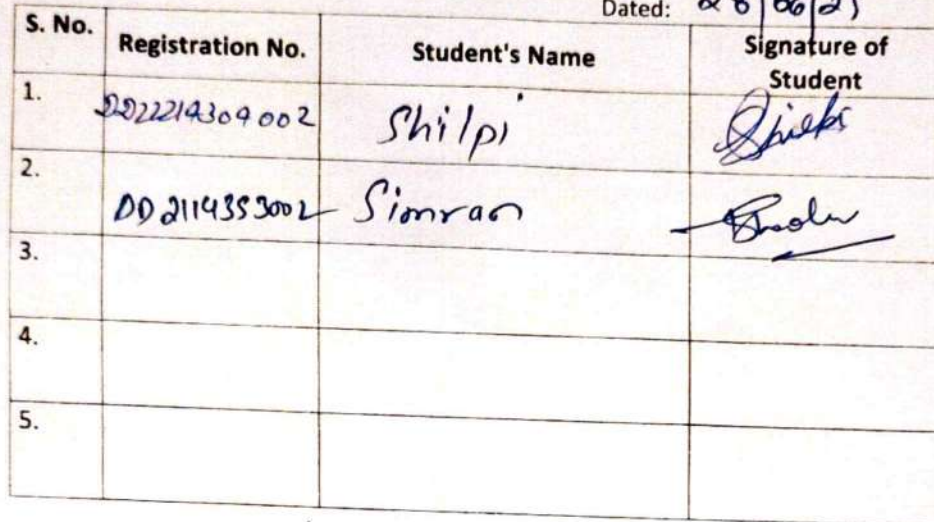 Dated:
S. No. Registration No. Student's Name Signature of Student
1. DD22214309002 Shilpi
2. DD2114353002 Simran
3.
4.
5.